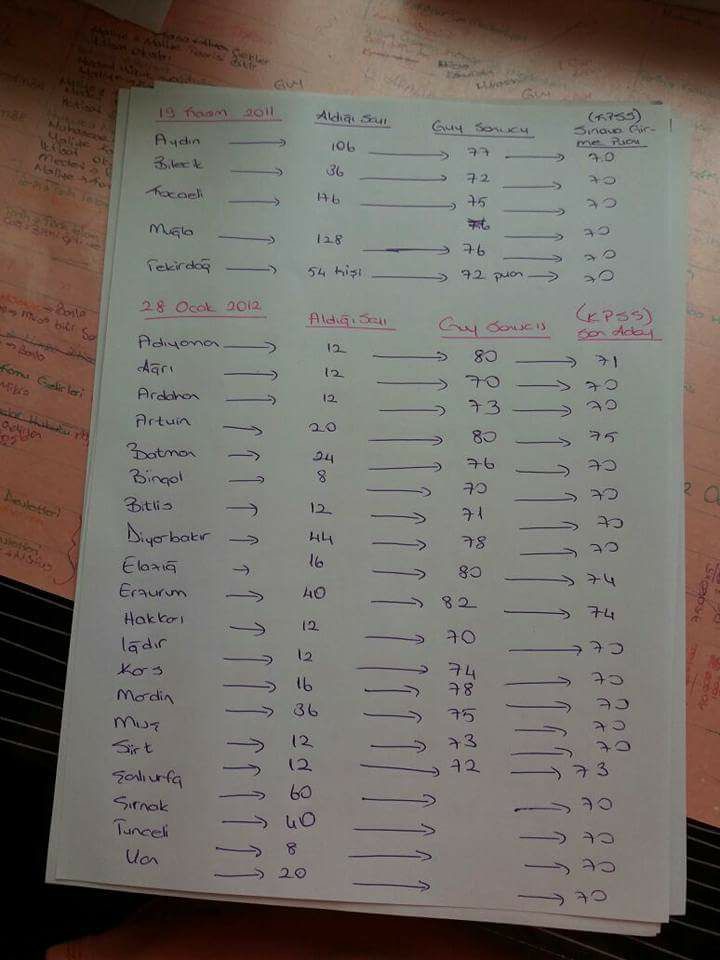 19 Kasım 2011 Aldığı Sayı Guy Sonucu (KPSS) Sınava Gir-
me Puanı
Aydın → 106 → 77 → 70
Bilecik → 36 → 72 → 70
Kocaeli → 176 → 75 → 70
Muğla → 128 → 76 → 70
Tekirdağ → 54 kişi → 72 puan → 70
28 Ocak 2012 Aldığı Sayı Guy Sonucu (KPSS) Son Aday
Adıyaman → 12 → 80 → 71
Ağrı → 12 → 70 → 70
Ardahan → 12 → 73 → 70
Artvin → 20 → 80 → 75
Batman → 24 → 76 → 70
Bingöl → 8 → 70 → 70
Bitlis → 12 → 71 → 70
Diyarbakır → 44 → 78 → 70
Elazığ → 16 → 80 → 74
Erzurum → 40 → 82 → 74
Hakkari → 12 → 70 → 70
Iğdır → 12 → 74 → 70
Kars → 16 → 78 → 70
Mardin → 36 → 75 → 70
Muş → 12 → 73 → 70
Siirt → 12 → 72 → 73
Şanlıurfa → 60 → → 70
Şırnak → 40 → → 70
Tunceli → 8 → → 70
Van → 20 → → 70